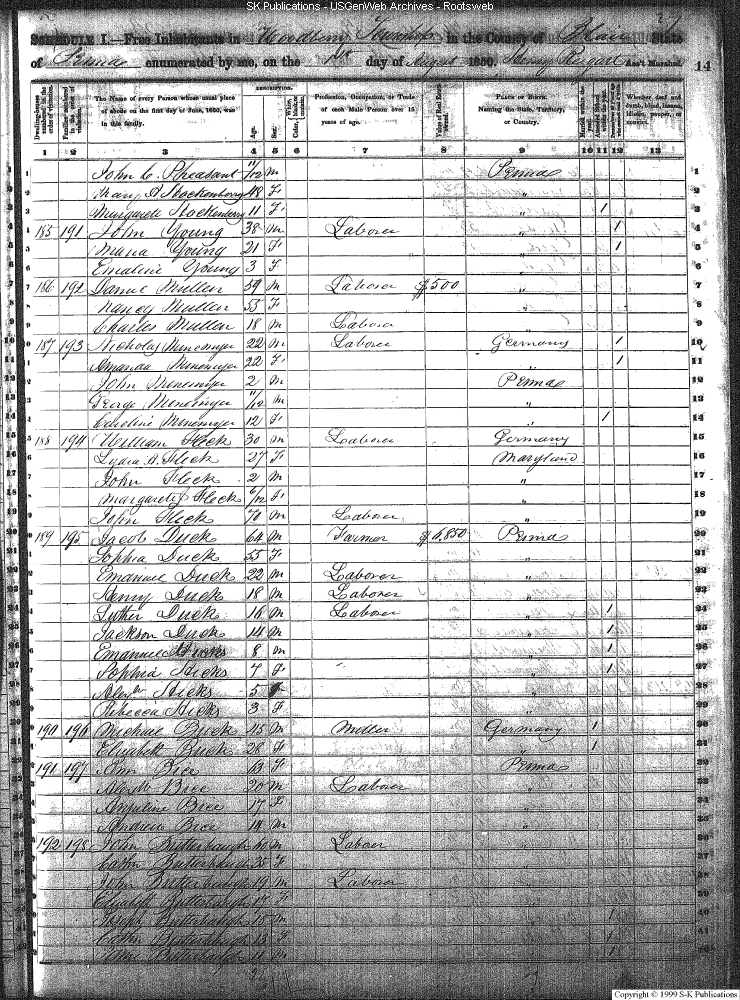 SK Publications - USGenWeb Archives - Rootsweb
SCHEDULE I.—Free Inhabitants in Woodberry Township in the County of Blair State
of Penna enumerated by me, on the 1st day of August 1850. Henry Ass't Marshal. 14
DESCRIPTION.
Dwelling-houses numbered in the order of visitation. Families numbered in the order of visitation. The Name of every Person whose usual place of abode on the first day of June, 1850, was in this family. Age. Sex. Color, Profession, Occupation, or Trade of each Male Person over 15 years of age. Value of Real Estate owned. PLACE OF BIRTH. Naming the State, Territory, or Country. Married within the year. Attended School within the year. Whether deaf and dumb, blind, insane, idiotic, pauper, or convict.
1 2 3 4 5 6 7 8 9 10 11 12 13
1 John C. Pheasant 11/12 M Penna 1
2 Mary A Stockenberry 48 F " 2
3 Margarett Stockenberry 11 F " 1 3
4 185 191 John Young 38 M Laborer " 1 4
5 Maria Young 21 F " 1 5
6 Emaline Young 3 F " 6
7 186 192 Daniel Mullen 59 M Laborer $500 " 7
8 Nancy Mullen 53 F " 8
9 Charles Mullen 18 M Laborer " 9
10 187 193 Nicholas 22 M Laborer Germany 1 10
11 Amanda 22 F " 1 11
12 John 2 M Penna 12
13 George 11/12 M " 13
14 Caroline 12 F " 1 14
15 188 194 William Fleck 30 M Laborer Germany 15
16 Lydia A. Fleck 27 F Maryland 16
17 John Fleck 2 M " 17
18 Margarett Fleck /12 F " 18
19 John Fleck 70 M Laborer " 19
20 189 195 Jacob Duck 64 M Farmer $ 6,850 Penna 20
21 Sophia Duck 53 F " 21
22 Emanuel Duck 22 M Laborer " 22
23 Henry Duck 18 M Laborer " 23
24 Luther Duck 16 M Laborer " 1 24
25 Jackson Duck 14 M " 1 25
26 Emanuel Hicks 8 M " 1 26
27 Sophia Hicks 7 F " 1 27
28 Alexdr Hicks 5 " 28
29 Rebecca Hicks 3 F " 29
190 196 Michael Buck 45 M Miller Germany 1 30
Elisabeth Buck 28 F " 1 31
191 197 Ann Bice 63 F Penna 32
Alexdr Bice 20 M Laborer " 33
Bice 17 F " 34
Andrew Bice 14 M "
192 198 John Butterbaugh 60 M Laborer "
Cathn Butterbaugh F "
John Butterbaugh 19 M Laborer "
Elisabeth Butterbaugh 17 F "
Joseph Butterbaugh 15 M " 1 40
Cathn Butterbaugh 13 F " 1
Butterbaugh 11 M " 1
Copyright © 1999 S-K Publications